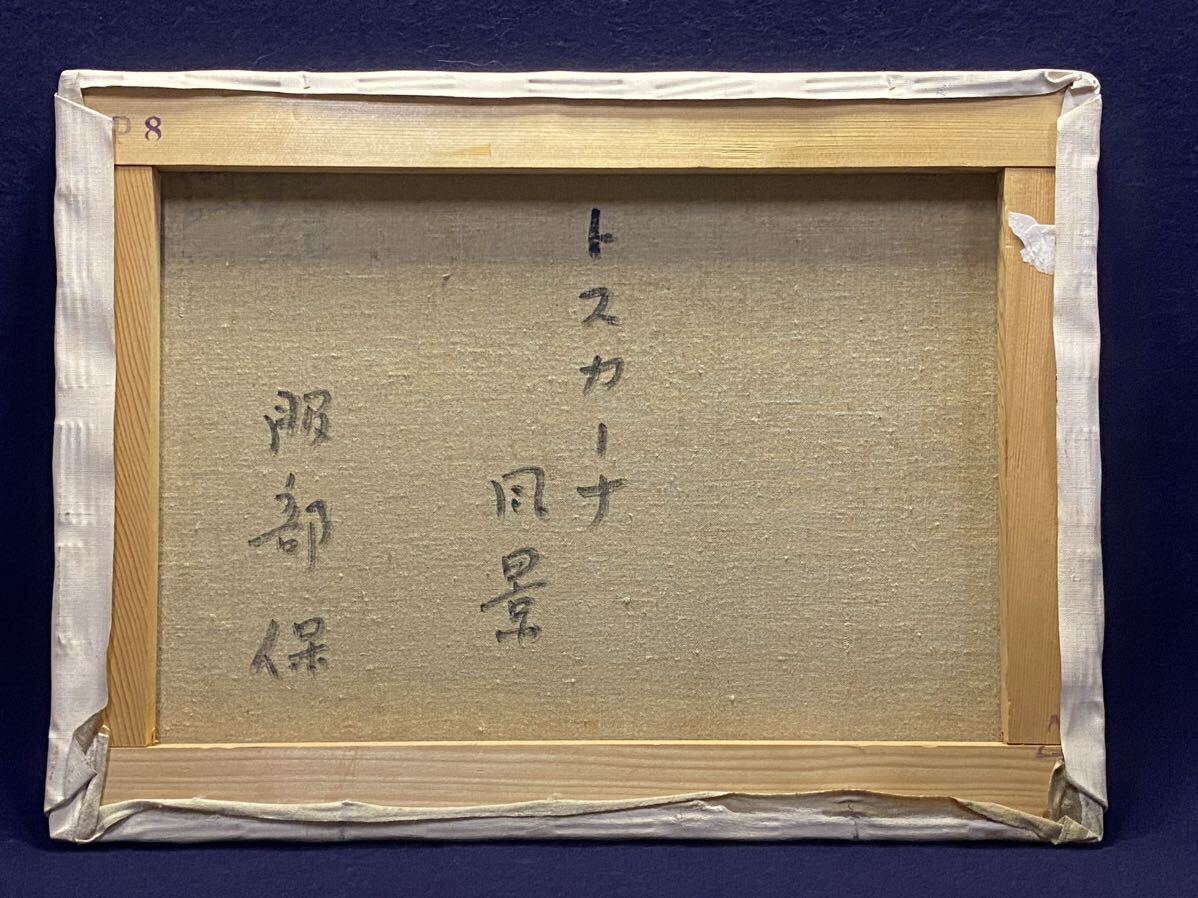 P8
トスカーナ
風景
服部保